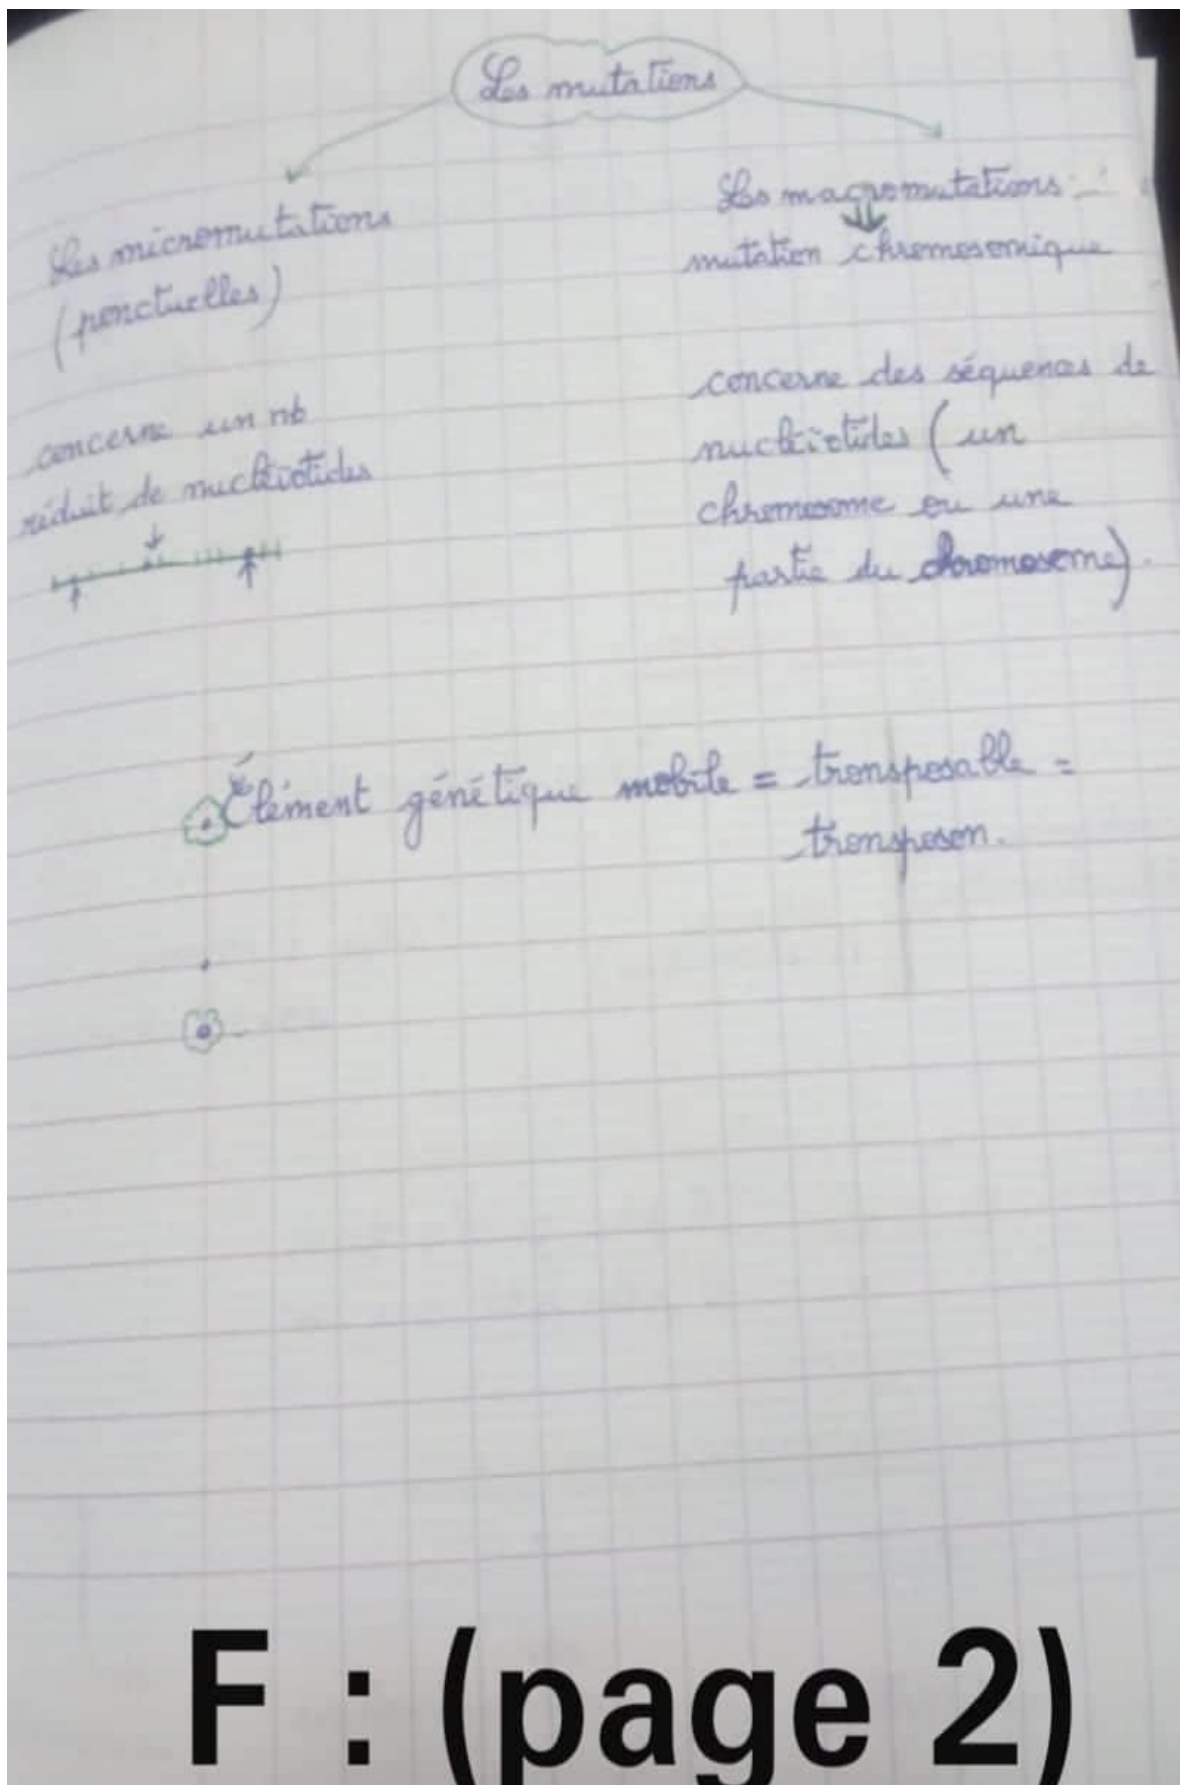 Les mutations
Les micromutations
(ponctuelles)
concerne un nb
réduit de nucléiotides
Les macromutations :
mutation chromosomique
concerne des séquences de
nucléiotides (un
chromosome ou une
partie du chromosome).
Élément génétique mobile = transposable =
transposon.
F : (page 2)